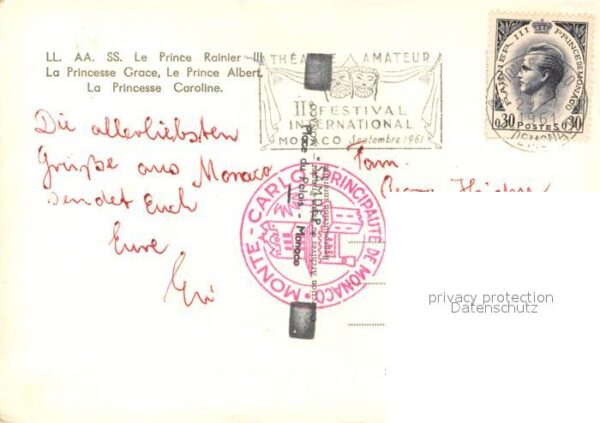 LL. AA. SS. Le Prince Rainier III
La Princesse Grace, Le Prince Albert,
La Princesse Caroline.
THÉATRE AMATEUR
IIe FESTIVAL
INTERNATIONAL
MONACO Septembre 1961
RAINIER III PRINCE DE MONACO
0,30 POSTES 0,30
1961
Die allerliebsten
Grüße aus Monaco
sendet Euch
Eure
Fam.
MONTE-CARLO PRINCIPAUTÉ DE MONACO
Place du Palais - Monaco
privacy protection
Datenschutz